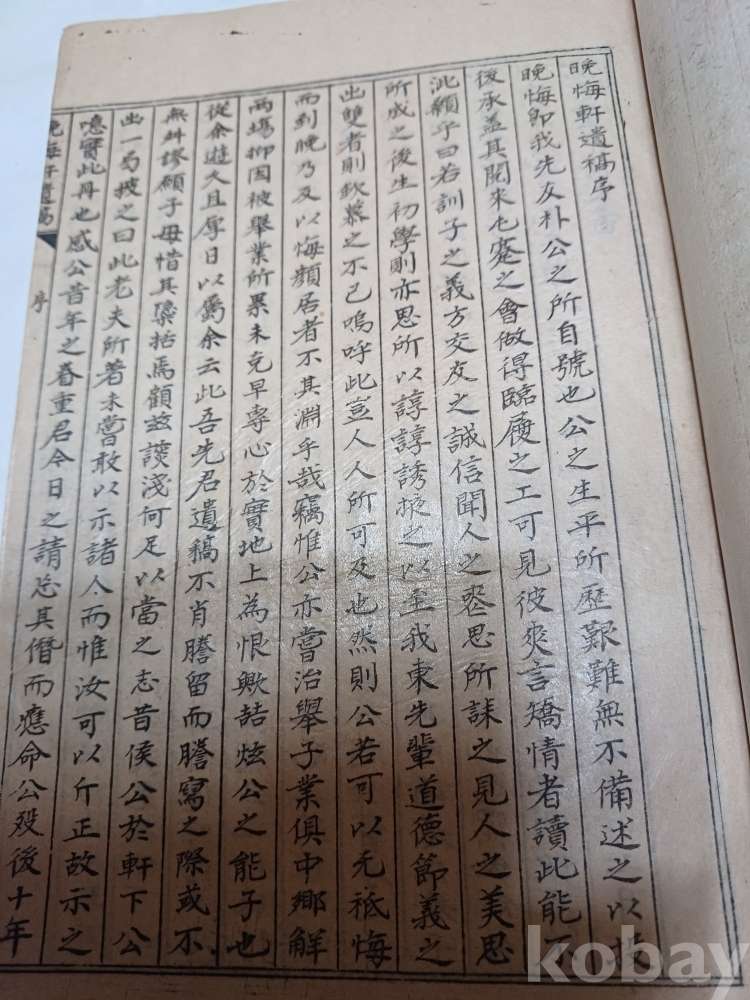 晩悔軒遺稿序
晩悔卽我先友朴公之所自號也公之生平所歷艱難無不備述之以故
後承盖其閱來屯蹇之會做得臨履之工可見彼爽言矯情者讀此能不
泚顙乎曰若訓子之義方交友之誠信聞人之惡思所誅之見人之美思
所成之後生初學則亦思所以諄諄誘掖之以至我東先輩道德節義之
出雙者則欽慕之不已嗚呼此豈人人所可及也然則公若可以无祗悔
而到晩乃及以悔顔居者不其淵乎哉竊惟公亦嘗治擧子業俱中鄕解
兩塲抑因被擧業所累未克早專心於實地上為恨歟喆炫公之能子也
從余遊久且厚日以属余云此吾先君遺稿不肖謄留而謄寫之際或不
無舛謬願子毋惜其檃括焉顧玆謏淺何足以當之志昔侯公於軒下公
出一局披之曰此老夫所著未嘗敢以示諸人而惟汝可以斤正故示之
噫實此冊也感公昔年之眷重君今日之請忘其僭而應命公歿後十年
晩悔軒遺稿
序
kobay